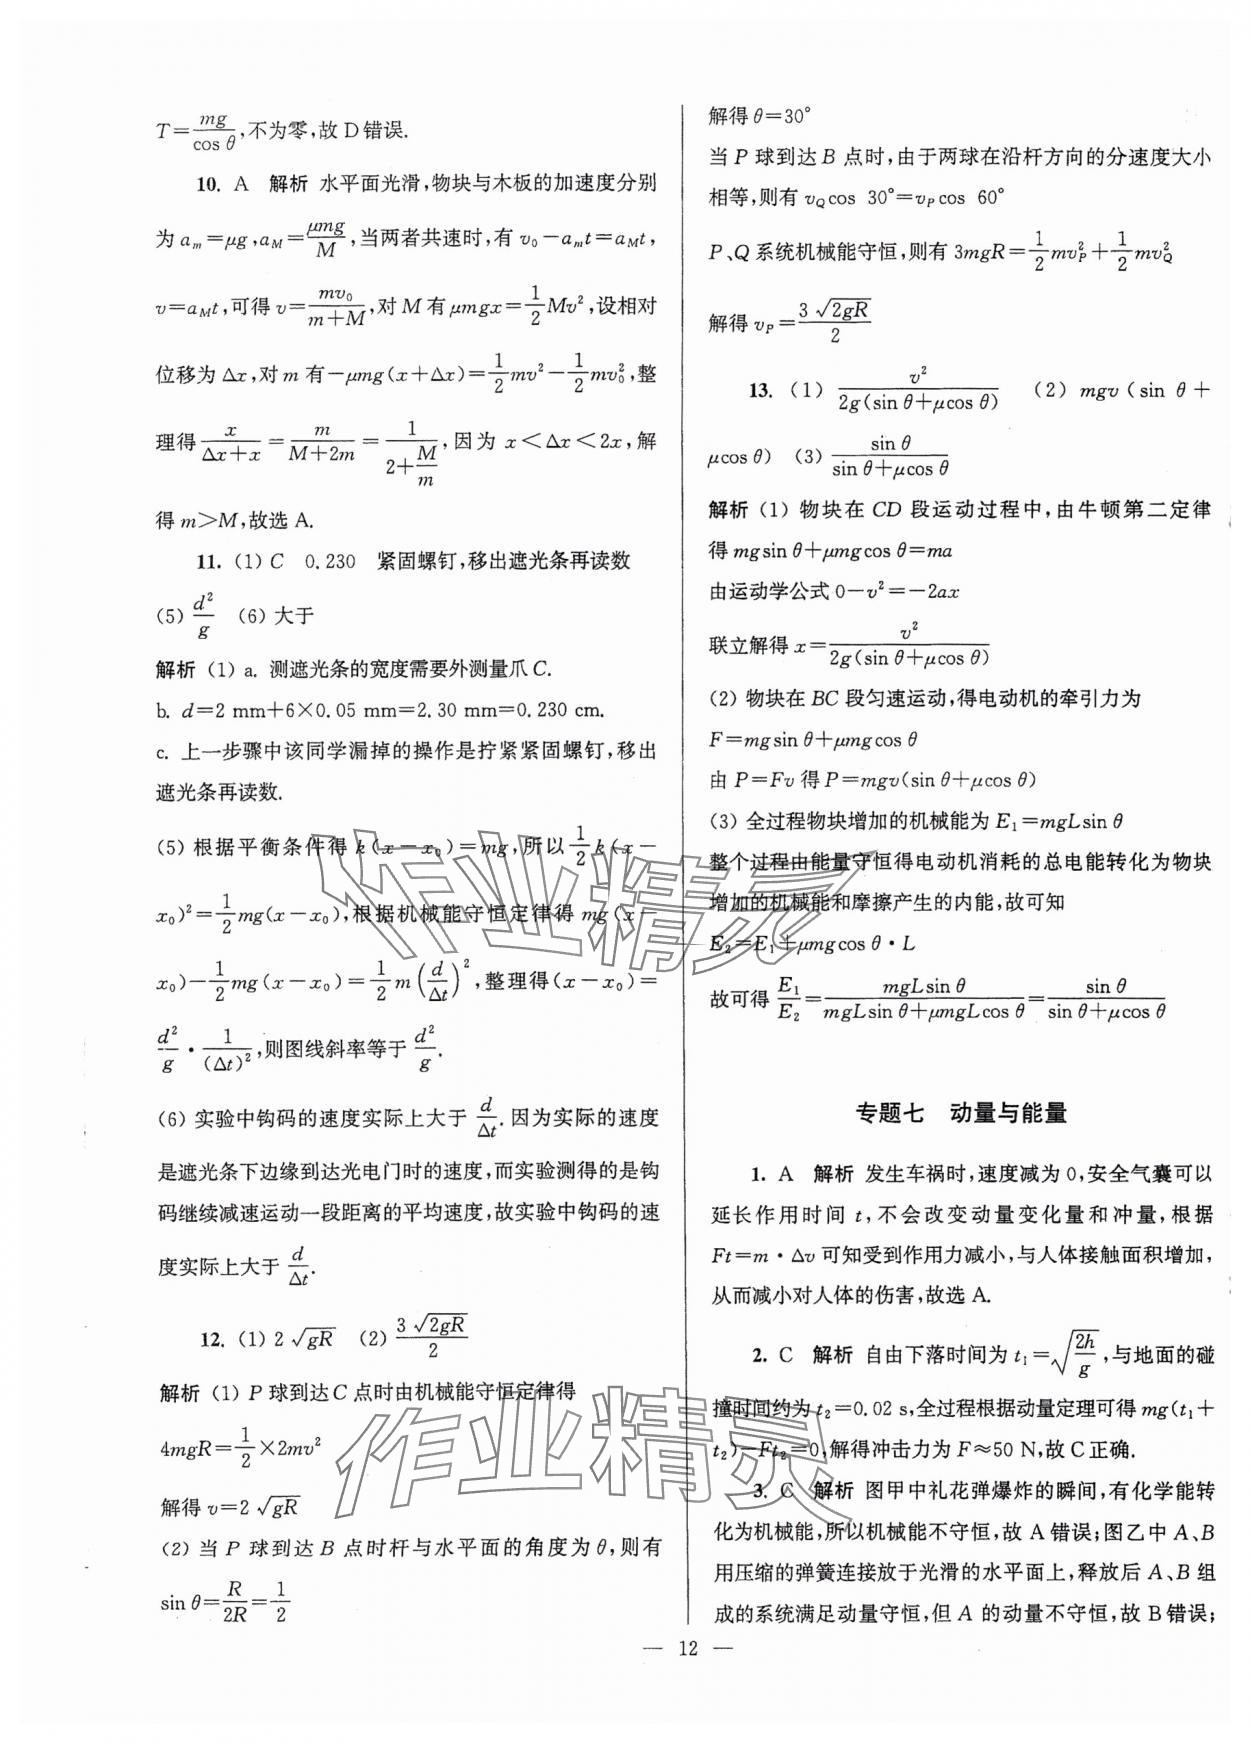 T=mg/cos θ,不为零,故 D 错误.
10. A 解析 水平面光滑,物块与木板的加速度分别
为 aₘ=μg,a_M=μmg/M,当两者共速时,有 v₀-aₘt=a_Mt,
v=a_Mt,可得 v=mv₀/(m+M),对 M 有 μmgx=1/2Mv²,设相对
位移为 Δx,对 m 有-μmg(x+Δx)=1/2mv²-1/2mv₀²,整
理得 x/(Δx+x)=m/(M+2m)=1/(2+M/m),因为 x<Δx<2x,解
得 m>M,故选 A.
11. (1) C 0.230 紧固螺钉,移出遮光条再读数
(5) d²/g (6) 大于
解析 (1) a. 测遮光条的宽度需要外测量爪 C.
b. d=2 mm+6×0.05 mm=2.30 mm=0.230 cm.
c. 上一步骤中该同学漏掉的操作是拧紧紧固螺钉,移出
遮光条再读数.
(5) 根据平衡条件得 k(x-x₀)=mg,所以 1/2k(x-
x₀)²=1/2mg(x-x₀),根据机械能守恒定律得 mg(x-
x₀)-1/2mg(x-x₀)=1/2m(d/Δt)²,整理得(x-x₀)=
d²/g·1/(Δt)²,则图线斜率等于 d²/g.
(6) 实验中钩码的速度实际上大于 d/Δt.因为实际的速度
是遮光条下边缘到达光电门时的速度,而实验测得的是钩
码继续减速运动一段距离的平均速度,故实验中钩码的速
度实际上大于 d/Δt.
12. (1) 2√(gR) (2) 3√(2gR)/2
解析 (1) P 球到达 C 点时由机械能守恒定律得
4mgR=1/2×2mv²
解得 v=2√(gR)
(2) 当 P 球到达 B 点时杆与水平面的角度为 θ,则有
sin θ=R/2R=1/2
解得 θ=30°
当 P 球到达 B 点时,由于两球在沿杆方向的分速度大小
相等,则有 v_Qcos 30°=v_Pcos 60°
P、Q 系统机械能守恒,则有 3mgR=1/2mv_P²+1/2mv_Q²
解得 v_P=3√(2gR)/2
13. (1) v²/2g(sin θ+μcos θ) (2) mgv(sin θ+
μcos θ) (3) sin θ/(sin θ+μcos θ)
解析 (1) 物块在 CD 段运动过程中,由牛顿第二定律
得 mgsin θ+μmgcos θ=ma
由运动学公式 0-v²=-2ax
联立解得 x=v²/2g(sin θ+μcos θ)
(2) 物块在 BC 段匀速运动,得电动机的牵引力为
F=mgsin θ+μmgcos θ
由 P=Fv 得 P=mgv(sin θ+μcos θ)
(3) 全过程物块增加的机械能为 E₁=mgLsin θ
整个过程由能量守恒得电动机消耗的总电能转化为物块
增加的机械能和摩擦产生的内能,故可知
E₂=E₁+μmgcos θ·L
故可得 E₁/E₂=mgLsin θ/(mgLsin θ+μmgLcos θ)=sin θ/(sin θ+μcos θ)
专题七 动量与能量
1. A 解析 发生车祸时,速度减为 0,安全气囊可以
延长作用时间 t,不会改变动量变化量和冲量,根据
Ft=m·Δv 可知受到作用力减小,与人体接触面积增加,
从而减小对人体的伤害,故选 A.
2. C 解析 自由下落时间为 t₁=√(2h/g),与地面的碰
撞时间约为 t₂=0.02 s,全过程根据动量定理可得 mg(t₁+
t₂)-Ft₂=0,解得冲击力为 F≈50 N,故 C 正确.
3. C 解析 图甲中礼花弹爆炸的瞬间,有化学能转
化为机械能,所以机械能不守恒,故 A 错误;图乙中 A、B
用压缩的弹簧连接放于光滑的水平面上,释放后 A、B 组
成的系统满足动量守恒,但 A 的动量不守恒,故 B 错误;
— 12 —
作业精灵
作业精灵